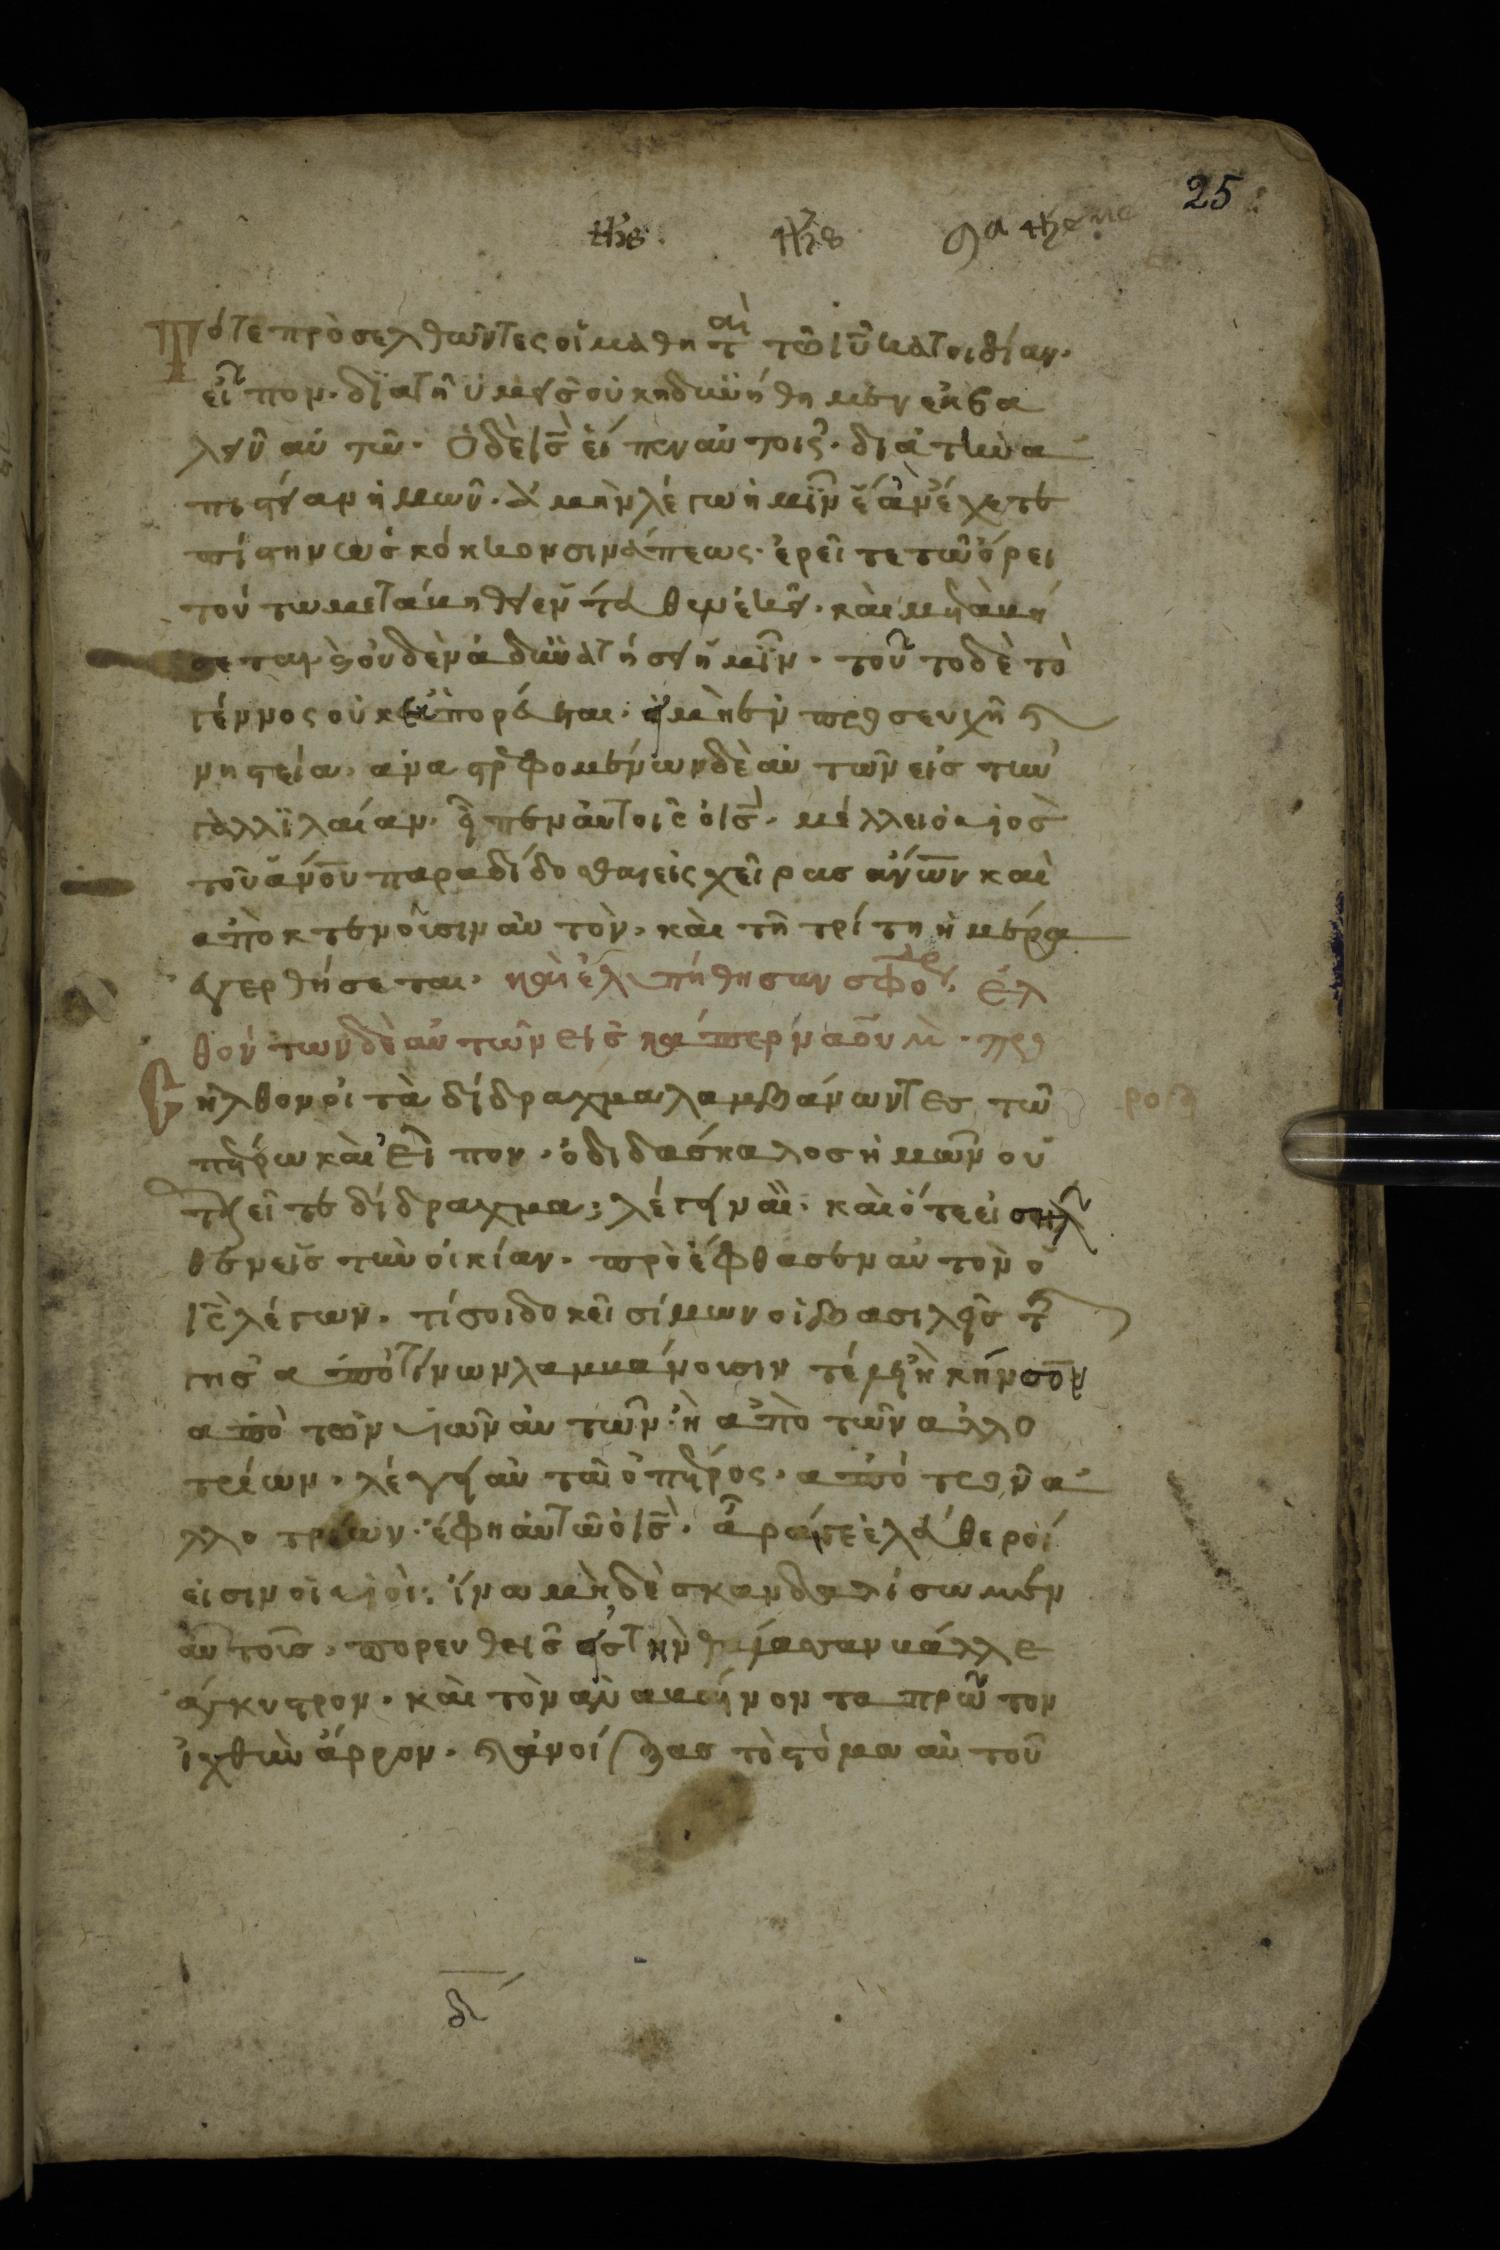 25
Τότε πρὸσελθῶντες οἱ μαθητ αὶ τῶ ιῦ κατοιδίαν·
εἶπον· διατῆ ὑμεῖς οὐκ ηδυνήθημεν εκβα
λεῖν αὐτῶ· Ὁ δὲ ις̅ εἶπεν αὐτοῖς· διὰ τὴν α
πιστείαν ἡμων· ἀμὴν λέγω ἡμῖν ἐὰν ἔχετε
πίστην ὡς κόκκον σινάπεως· ἐρεῖτε τῶ ὄρει
τούτω μετάκηθει ἐντεῦθεν ἐκεῖ· καὶ μετακή
σεται· καὶ οὐδὲν ἀδυνατήσει ἡμῖν· τοῦτο δὲ τὸ
γέννος οὐκ εκπορεύεται· εἰ μὴ ἐν προσευχῆ καὶ
νηστεία· αναστρεφομένων δὲ αὐτῶν εἰς τὴν
γαλλιλαίαν· εἶπεν αὐτοῖς ὁ ις̅· μέλλει ὁ υἱὸς
τοῦ ἀνο̅υ παραδίδοσθαι εἰς χεῖρας ἀνω̅ν καὶ
αποκτενοῦσιν αὐτὸν· καὶ τῆ τρίτη ἡμέρα
εγερθήσεται· καὶ ἐλυπήθησαν σφόδρα· Ἐλ
θόντων δὲ αὐτῶν εις καπερναοὺμ· προ
σῆλθον οἱ τὰ δίδραχμα λαμβάνωντες τῶ
πέτρω καὶ εἶπον· ὁ διδάσκαλος ἡμῶν οὐ
τελεῖ τὰ δίδραχμα; λέγει ναὶ· καὶ ότε εἰσῆλ
θεν εἰς τὴν οἰκίαν· προέφθασεν αὐτὸν ὁ
ις̅ λέγων· τί σοι δοκεῖ σίμων οἱ βασιλεῖς τῆς
γῆς απὸ τίνων λαμβάνουσιν τέλη ἢ κῆνσον
απὸ τῶν υἱῶν αὐτῶν· ἢ απὸ τῶν αλλο
τρίων· λέγει αὐτῶ ὁ πέτρος· απὸ τῶν α
λλοτρίων· ἔφη αὐτῶ ὁ ις̅· ἄραγε ἐλεύθεροί
εἰσιν οἱ υἱοὶ· ἵνα μὴ δὲ σκανδαλίσωμεν
αὐτοῖς· πορευθεὶς εἰς τὴν θάλασσαν βάλλε
άγκυστρον· καὶ τὸν αναβάντα πρῶτον
ἰχθὺν άρρον· καὶ ἀνοίξας τὸ στόμα αὐτοῦ
δ